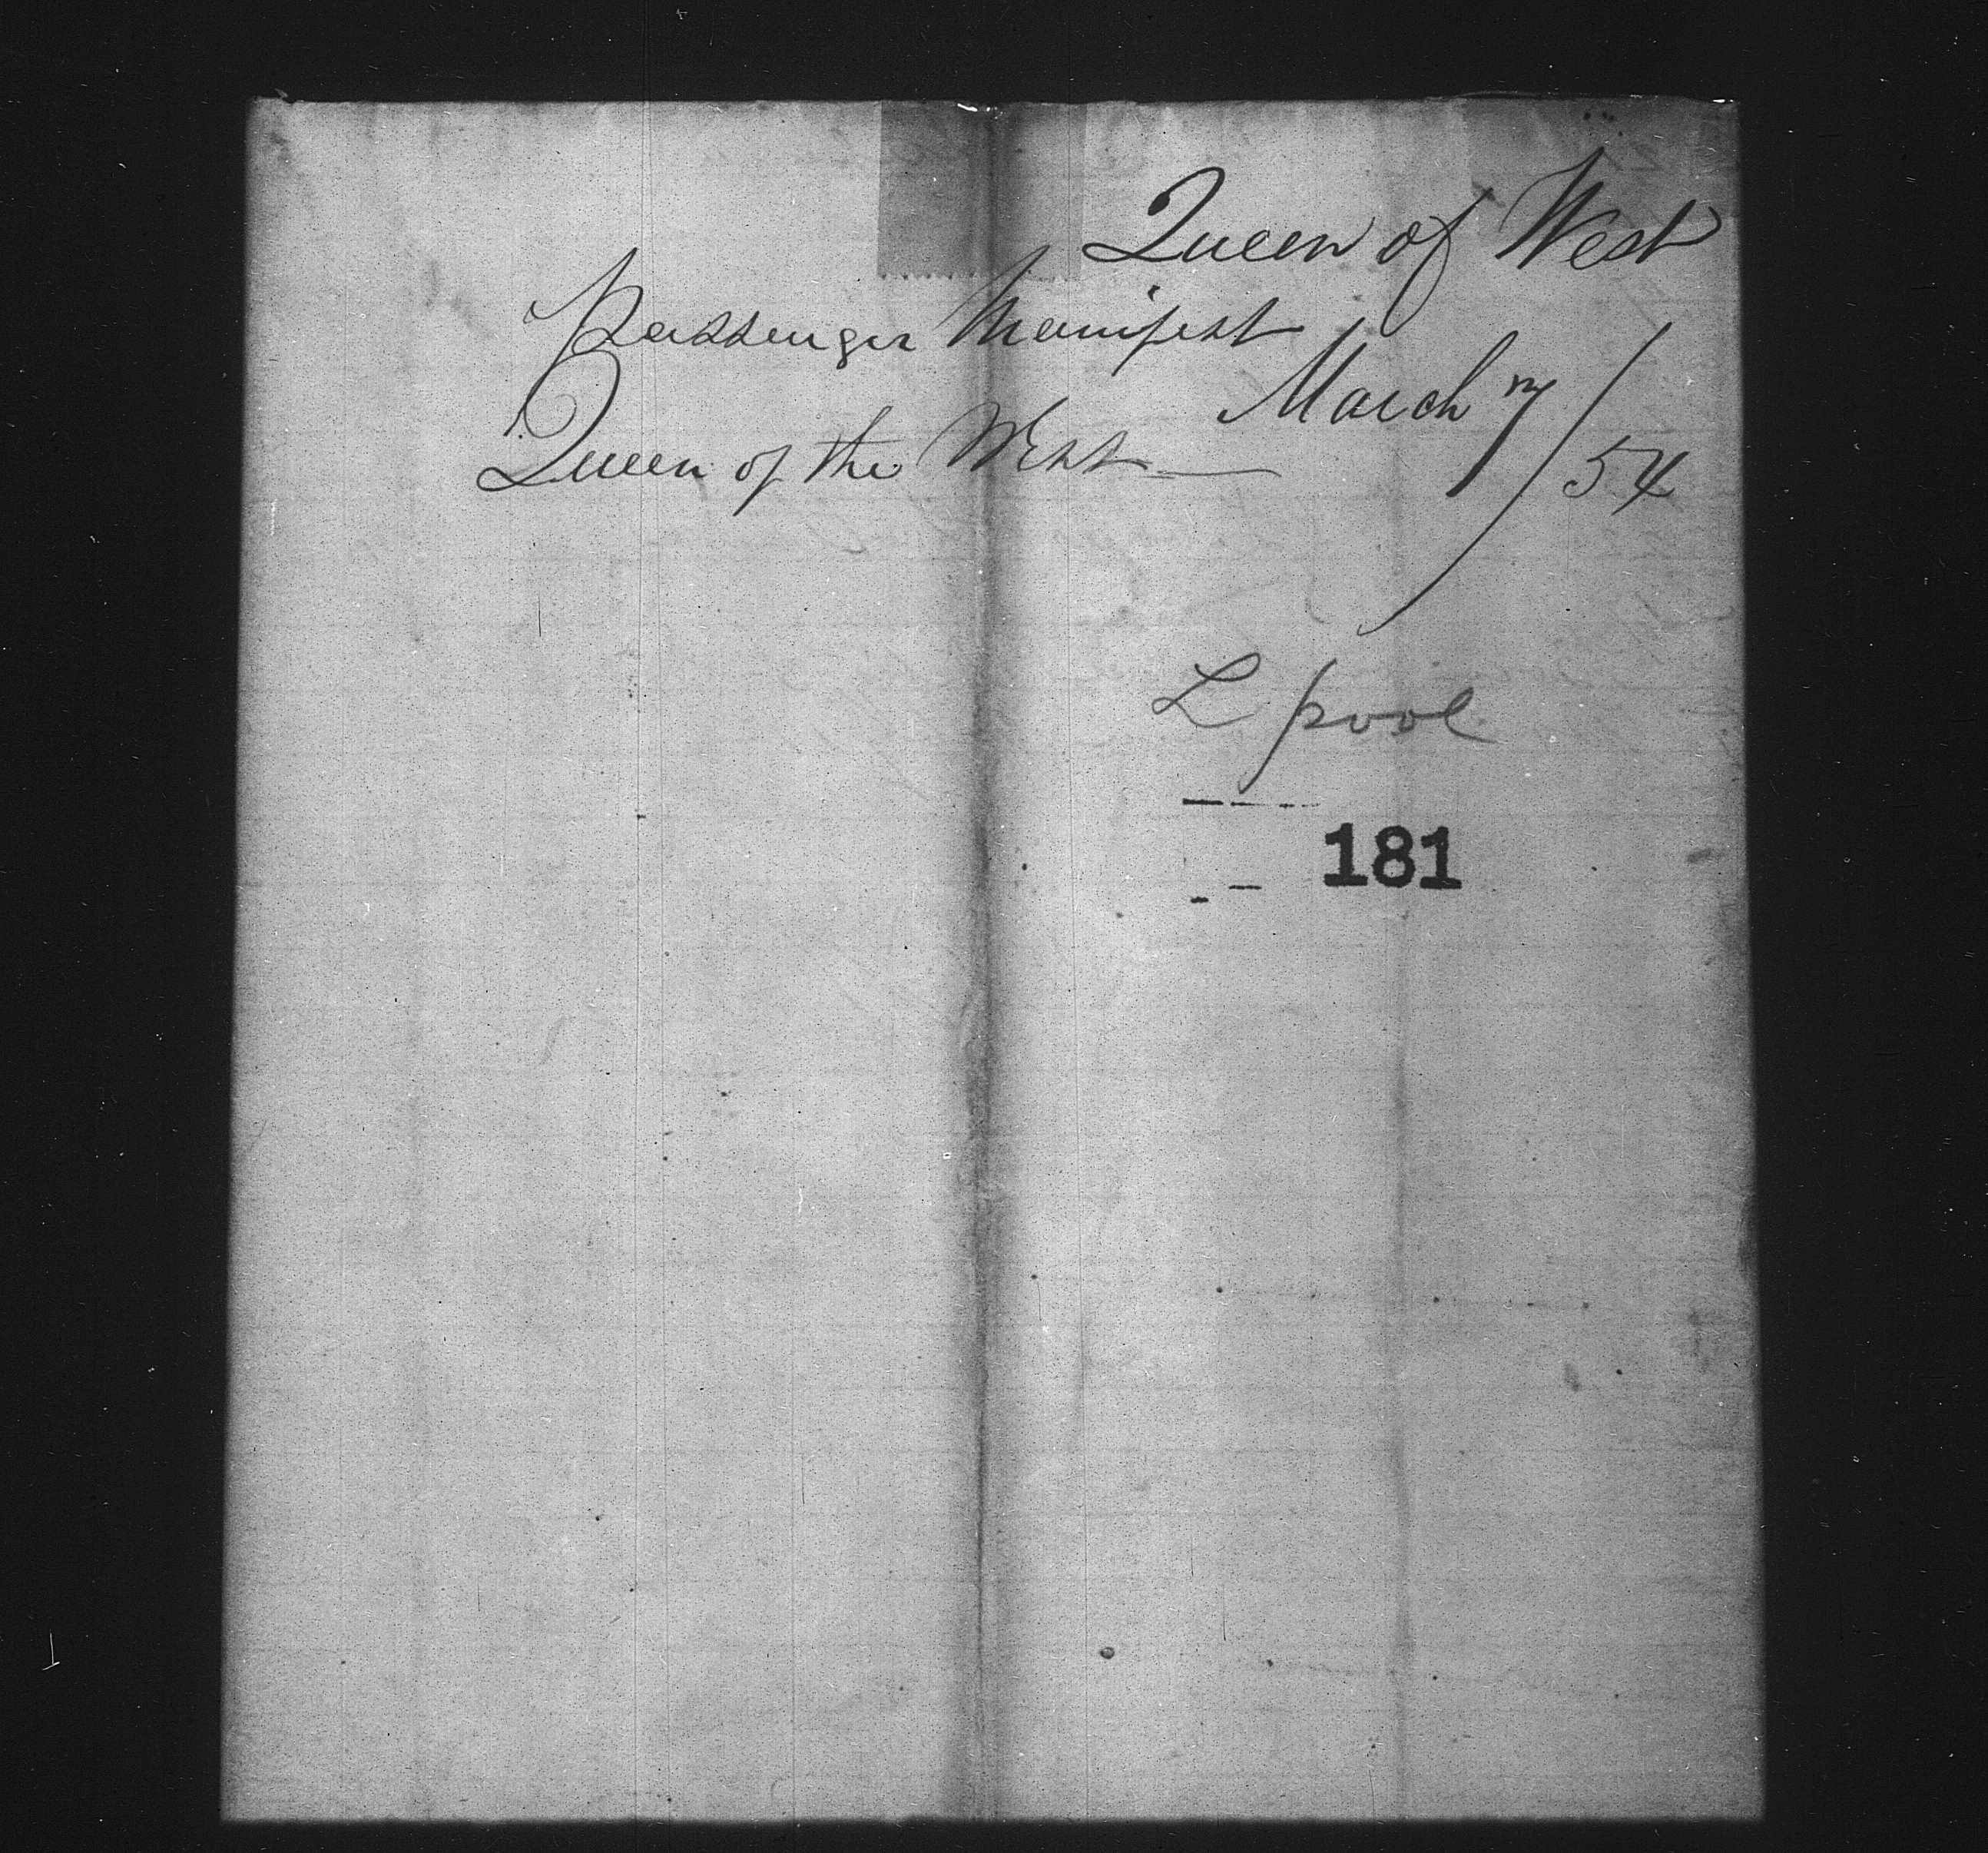 Queen of West
Passenger Manifest
Queen of the West
March 7/54
L pool
181